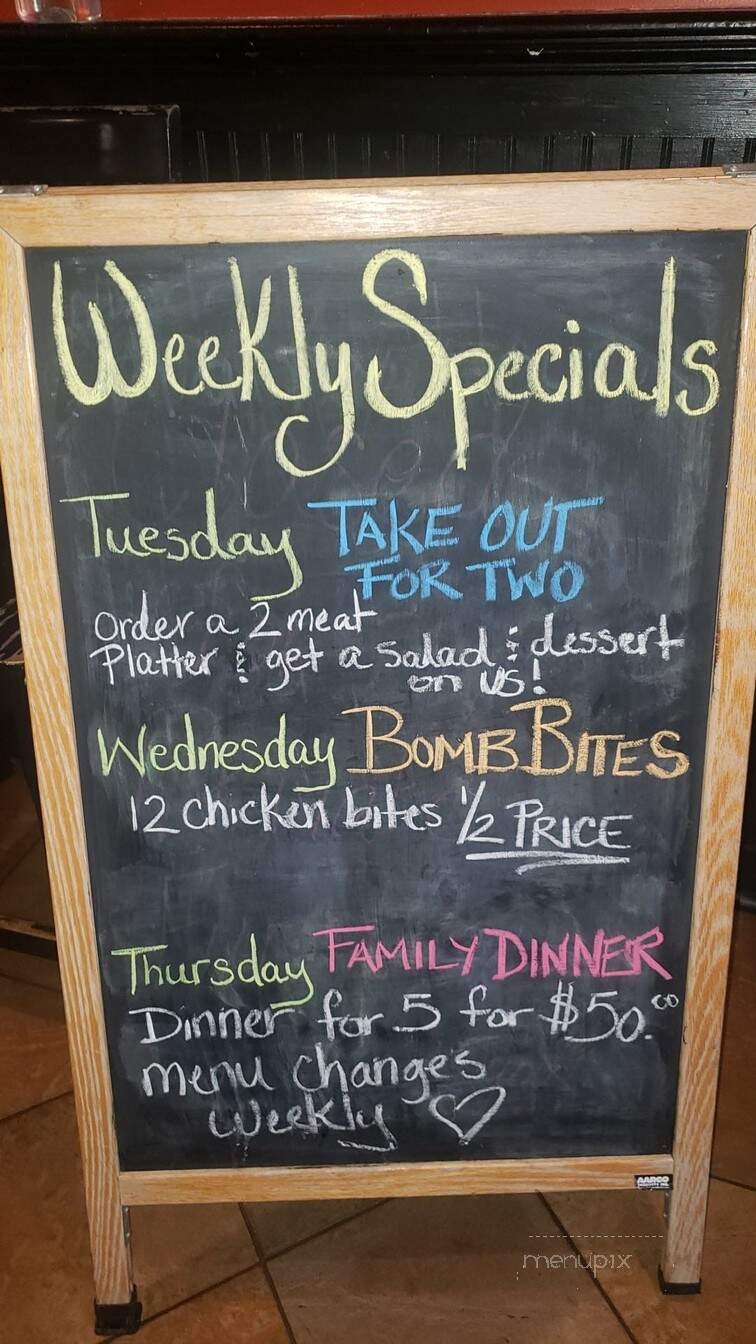 Weekly Specials
Tuesday TAKE OUT
FOR TWO
order a 2 meat
Platter & get a salad & dessert
on us!
Wednesday BOMB BITES
12 chicken bites 1/2 PRICE
Thursday FAMILY DINNER
Dinner for 5 for $50.00
menu changes
weekly ♡
AARCO
menupix